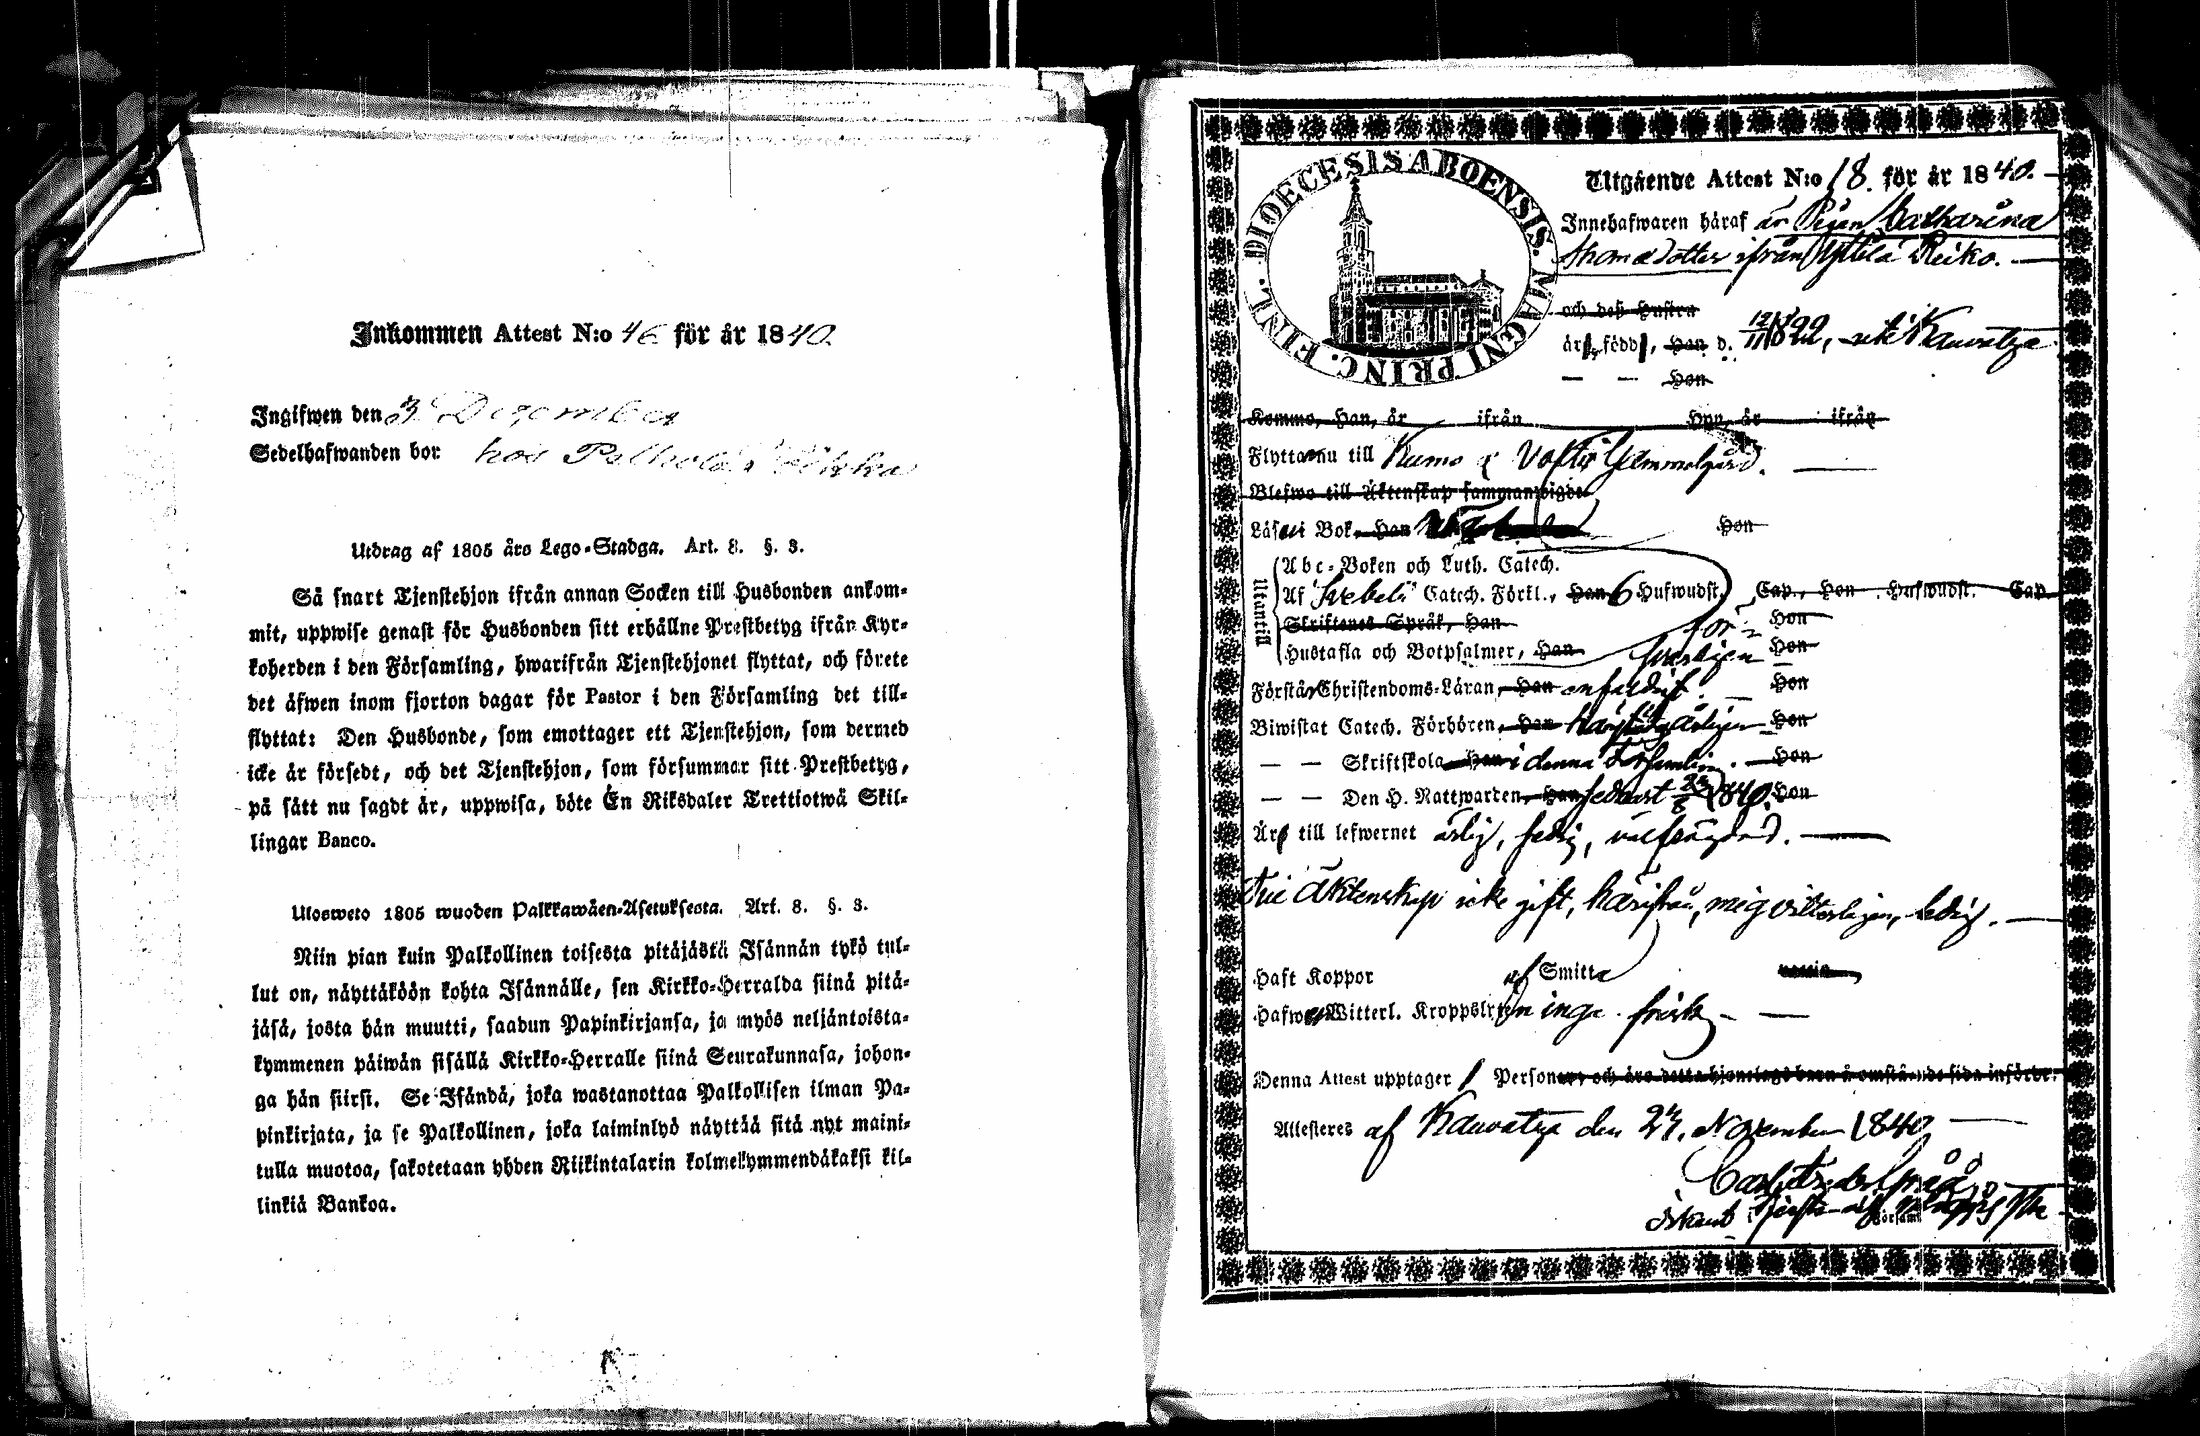 Inkommen Attest N:o 46 för år 1840.
Ingifwen den 3 Dezember
Sedelhafwanden bor hos
Utdrag af 1805 års Lego-Stadga. Art. 8. §. 3.
Så snart Tjenstehjon ifrån annan Socken till Husbonden ankom-
mit, uppwise genast för Husbonden sitt erhållne Prestbetyg ifrån Kyr-
koherden i den Församling, hwarifrån Tjenstehjonet flyttat, och förete
det äfwen inom fjorton dagar för Pastor i den Församling det till-
flyttat: Den Husbonde, som emottager ett Tjenstehjon, som dermed
icke är försedt, och det Tjenstehjon, som försummar sitt Prestbetyg,
på sätt nu sagdt är, uppwisa, böte En Riksdaler Trettiotwå Skil-
lingar Banco.
Ulosweto 1805 wuoden Palkkawäen-Asetuksesta. Art. 8. §. 3.
Niin pian kuin Palkollinen toisesta pitäjästä Isännän tykö tul-
lut on, näyttäköön kohta Isännälle, sen Kirkko-Herralda siinä pitä-
jäsä, josta hän muutti, saadun Papinkirjansa, ja myös neljäntoista-
kymmenen päiwän sisällä Kirkko-Herralle siinä Seurakunnasa, johon-
ga hän siirsi. Se Isändä, joka wastanottaa Palkollisen ilman Pa-
pinkirjata, ja se Palkollinen, joka laiminlyö näyttää sitä nyt maini-
tulla muotoa, sakotetaan yhden Riikintalarin kolmekymmendäkaksi kil-
linkiä Bankoa.
DIOECESIS ABOENSIS. MAGNI PRINC. FINL.
Utgående Attest N:o 18. för år 1840.
Innehafwaren häraf är Pigan Catharina
Thomædotter ifrån Yttilä Reiko.
och deß Hustru
är, född, Han d. 12/11 1822, uti Kauvatza
— — Hon
Komma, Han, år ifrån Hon, år ifrån
Flytta nu till Kumo & Gammelgård.
Blefwo till Äktenskap sammanwigde
Läser i Bok, Han Hon
Utantill
Abc-Boken och Luth. Catech.
Af Svebelii Catech. Förkl., Han 6 Hufwudst. Cap., Hon Hufwudst. Cap.
Skriftenes Språk, Han Hon
Hustafla och Botpsalmer, Han Hon
Förstår Christendoms-Läran, Han enfaldigt. Hon
Biwistat Catech. Förhören, Han Hon
— — Skriftskola Han i denna Församling. Hon
— — Den H. Nattwarden, Han sednast 23/8 1840. Hon
Är till lefwernet ärlig, sedig, välfrägdad.
Till Äktenskap icke gift, härifrån, mig vitterligen, ledig.
Haft Koppor af Smitta
Hafwer Witterl. Kroppslyten inga. frisk
Denna Attest upptager 1 Personer, och äro detta hjonelags barn å omstående sida införde.
Attesteres af Kauvatza den 27. November 1840